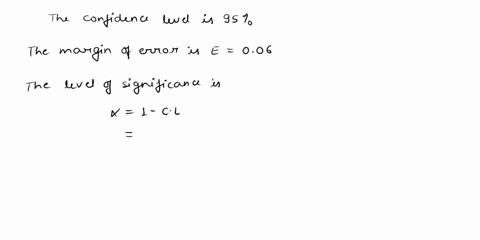 The confidence level is 95%
The margin of error is E = 0.06
The level of significance is
α = 1 - C.L
=